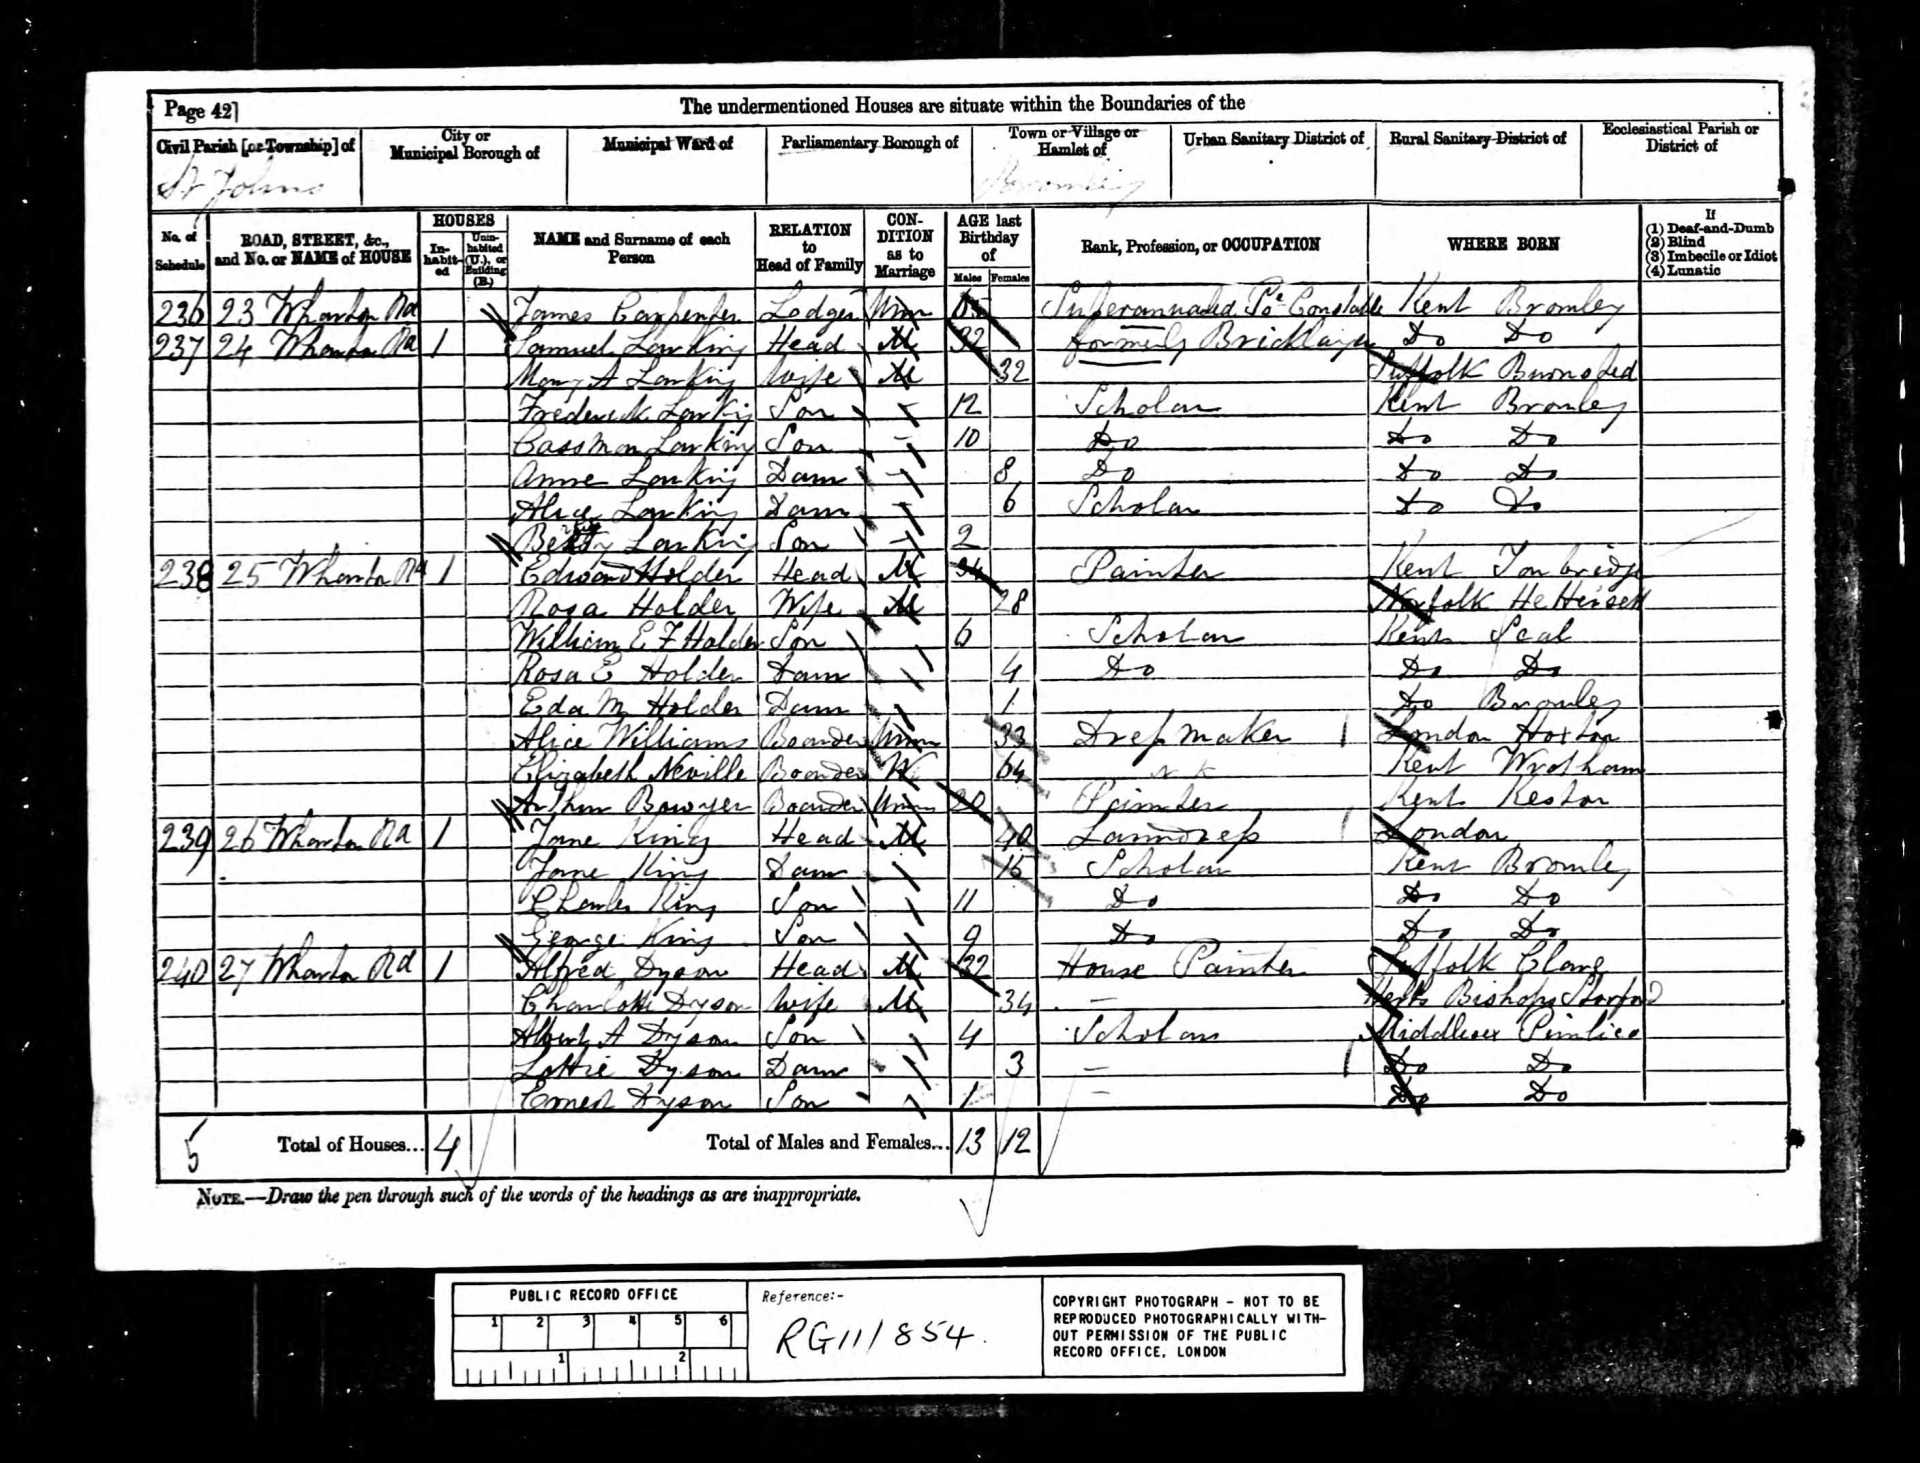 Page 42]
The undermentioned Houses are situate within the Boundaries of the
Civil Parish [or Township] of
City or Municipal Borough of
Municipal Ward of
Parliamentary Borough of
Town or Village or Hamlet of
Urban Sanitary District of
Rural Sanitary District of
Ecclesiastical Parish or District of
St Johns
Bromley
No. of Schedule
ROAD, STREET, &c., and No. or NAME of HOUSE
HOUSES
In-habit-ed
Unin-habited (U.), or Building (B.)
NAME and Surname of each Person
RELATION to Head of Family
CON-DITION as to Marriage
AGE last Birthday of
Males
Females
Rank, Profession, or OCCUPATION
WHERE BORN
If
(1) Deaf-and-Dumb
(2) Blind
(3) Imbecile or Idiot
(4) Lunatic
236 23 Wharton Rd James Carpenter Lodger Unm 65 Superannuated Po Constable Kent Bromley
237 24 Wharton Rd 1 Samuel Larking Head M 32 formerly Bricklayer Do Do
Mary A Larking Wife M 32 Suffolk
Frederick Larking Son - 12 Scholar Kent Bromley
Larking Son - 10 Do Do Do
Anne Larking Daur - 8 Do Do Do
Alice Larking Daur - 6 Scholar Do Do
Larking Son - 2
238 25 Wharton Rd 1 Edward Holder Head M 34 Painter Kent Tonbridge
Rosa Holder Wife M 28 Norfolk Hethersett
William E F Holder Son 6 Scholar Kent Seal
Rosa E Holder Daur 4 Do Do Do
Eda M Holder Daur 1 Do Bromley
Alice Williams Boarder Unm 33 Dress Maker London Hoxton
Elizabeth Neville Boarder W 64 N K Kent Wrotham
Arthur Bowyer Boarder Unm 20 Painter Kent Keston
239 26 Wharton Rd 1 Jane King Head M 40 Laundress London
Jane King Daur 15 Scholar Kent Bromley
Charles King Son 11 Do Do Do
George King Son 9 Do Do Do
240 27 Wharton Rd 1 Alfred Dyson Head M 32 House Painter Suffolk Clare
Charlotte Dyson Wife M 34 - Herts Bishops Storford
Albert A Dyson Son 4 Scholar Middlesex Pimlico
Lottie Dyson Daur 3 - Do Do
Ernest Dyson Son 1 - Do Do
5 Total of Houses... 4 Total of Males and Females... 13 12
NOTE.—Draw the pen through such of the words of the headings as are inappropriate.
PUBLIC RECORD OFFICE
1 2 3 4 5 6
1 2
Reference:-
RG11/854.
COPYRIGHT PHOTOGRAPH - NOT TO BE
REPRODUCED PHOTOGRAPHICALLY WITH-
OUT PERMISSION OF THE PUBLIC
RECORD OFFICE, LONDON